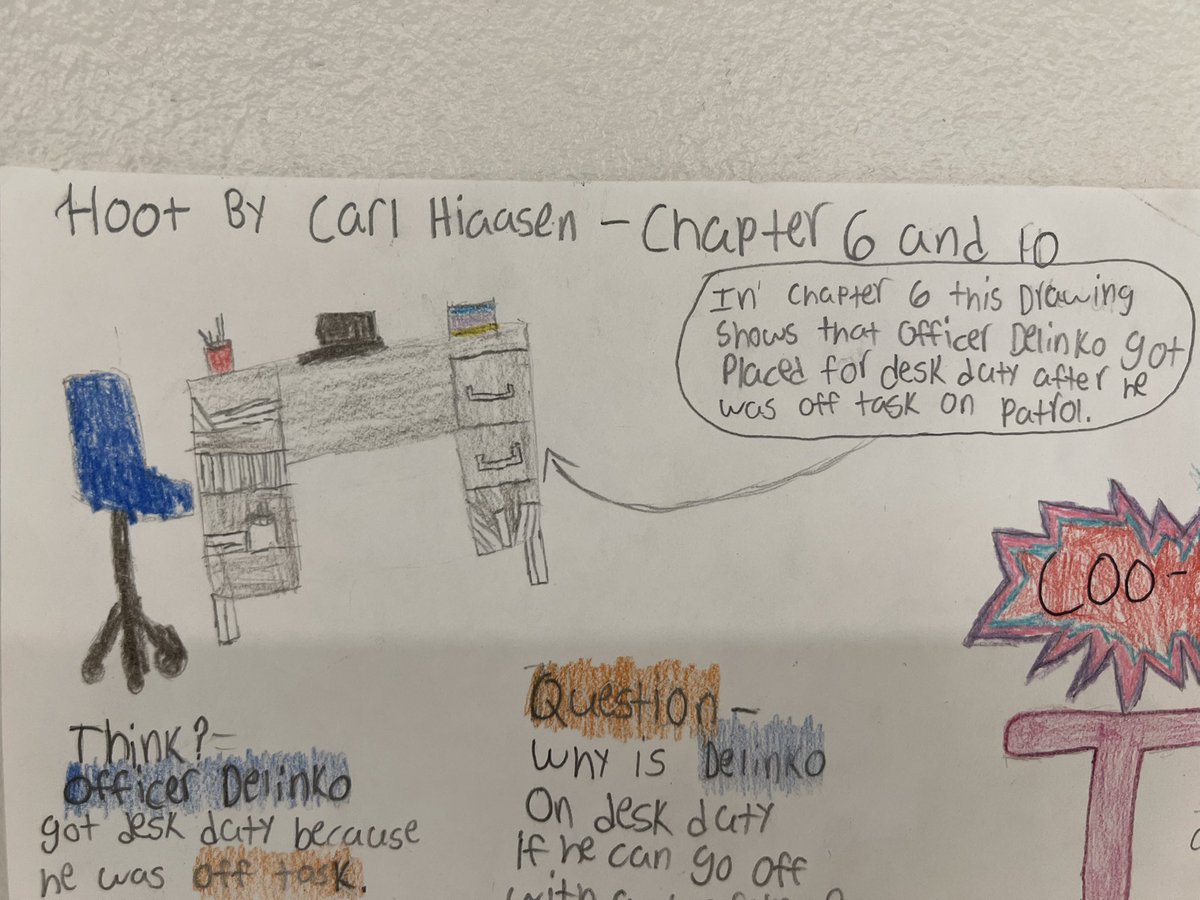 Hoot By Carl Hiaasen - Chapter 6 and 10
In Chapter 6 this Drawing
Shows that Officer Delinko got
Placed for desk duty after he
was off task on Patrol.
COO-
Think?-
Officer Delinko
got desk duty because
he was off task.
Question-
Why is Delinko
On desk duty
If he can go off